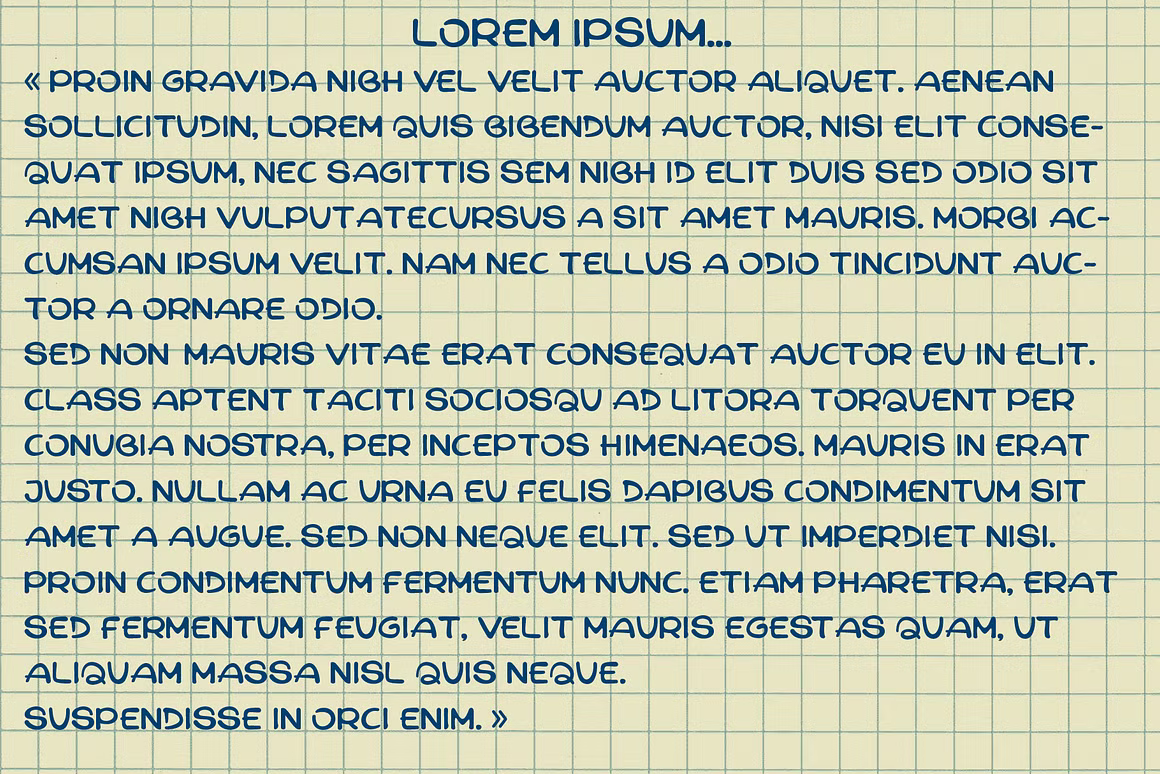 LOREM IPSUM...
« PROIN GRAVIDA NIBH VEL VELIT AUCTOR ALIQUET. AENEAN
SOLLICITUDIN, LOREM QUIS BIBENDUM AUCTOR, NISI ELIT CONSE-
QUAT IPSUM, NEC SAGITTIS SEM NIBH ID ELIT DUIS SED ODIO SIT
AMET NIBH VULPUTATECURSUS A SIT AMET MAURIS. MORBI AC-
CUMSAN IPSUM VELIT. NAM NEC TELLUS A ODIO TINCIDUNT AUC-
TOR A ORNARE ODIO.
SED NON MAURIS VITAE ERAT CONSEQUAT AUCTOR EU IN ELIT.
CLASS APTENT TACITI SOCIOSQU AD LITORA TORQUENT PER
CONUBIA NOSTRA, PER INCEPTOS HIMENAEOS. MAURIS IN ERAT
JUSTO. NULLAM AC URNA EU FELIS DAPIBUS CONDIMENTUM SIT
AMET A AUGUE. SED NON NEQUE ELIT. SED UT IMPERDIET NISI.
PROIN CONDIMENTUM FERMENTUM NUNC. ETIAM PHARETRA, ERAT
SED FERMENTUM FEUGIAT, VELIT MAURIS EGESTAS QUAM, UT
ALIQUAM MASSA NISL QUIS NEQUE.
SUSPENDISSE IN ORCI ENIM. »